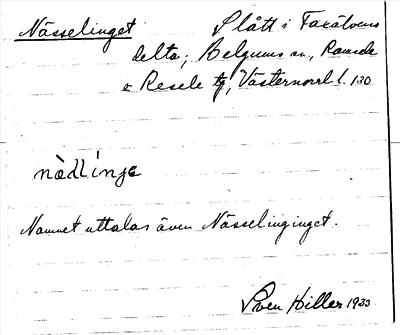 Nässelinget Slått i Faxälvens
delta; Helgums sn., Ramsele
o Resele tg, Västernorrl. l. 130
nàdlínje
Namnet uttalas även Nässelinginget.
Sven Hiller 1933